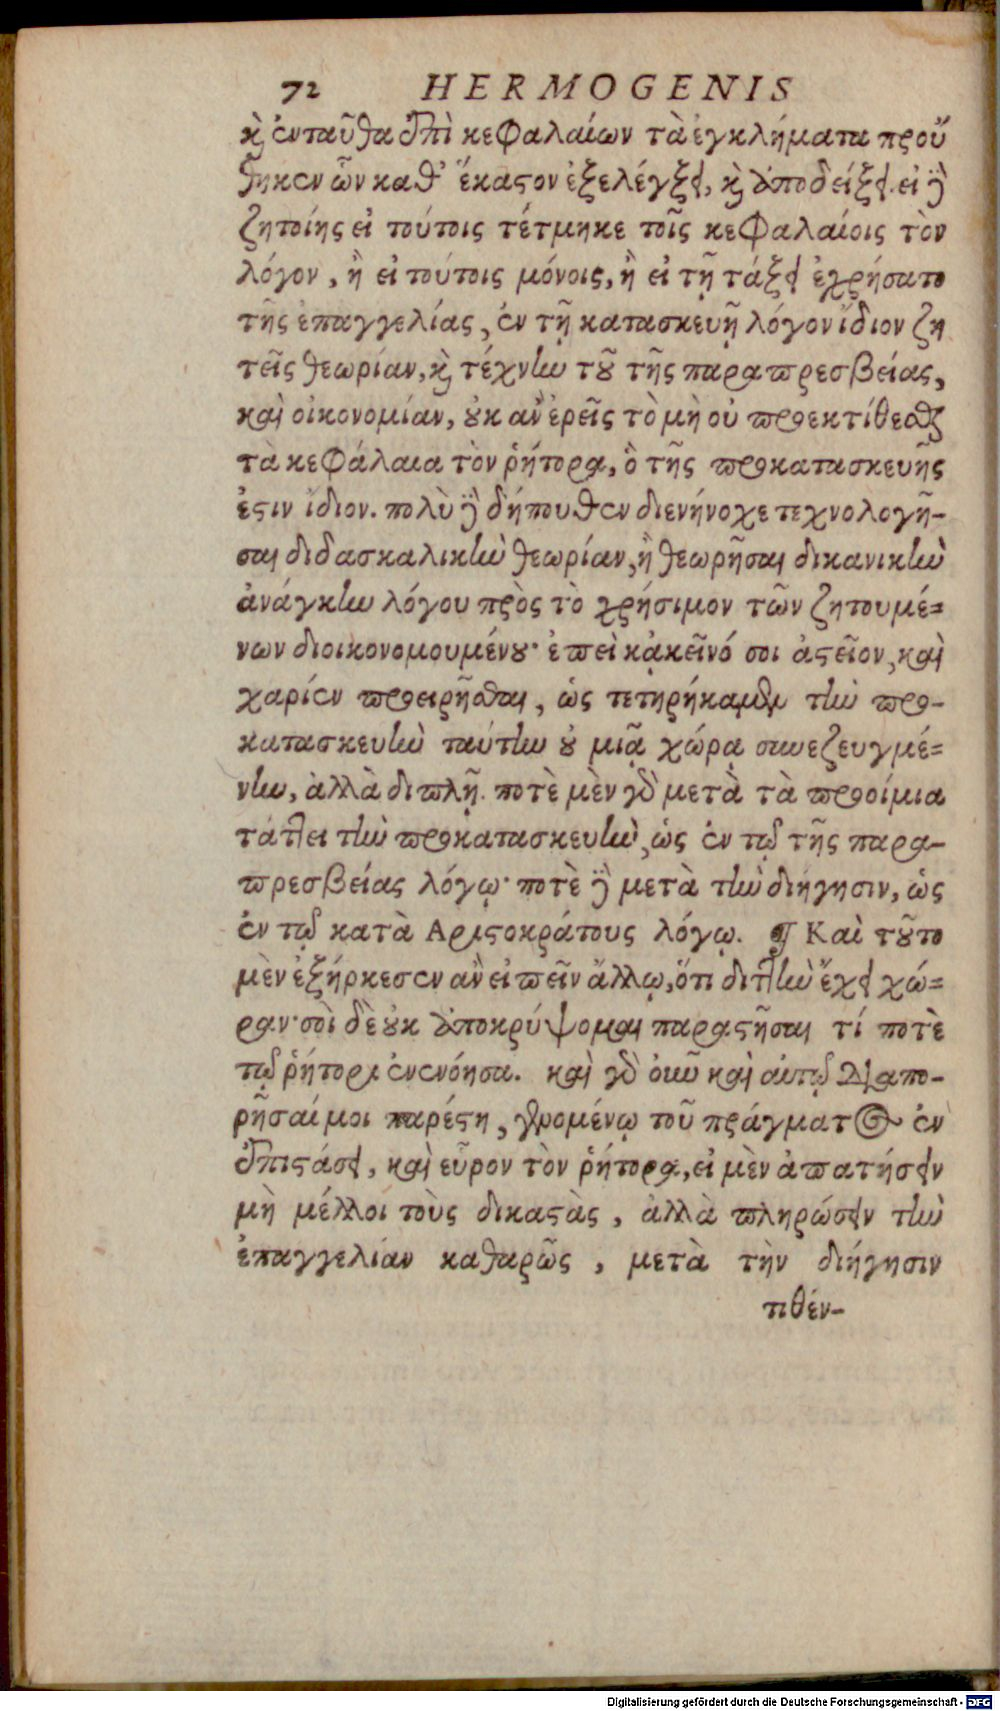 72 HERMOGENIS
καὶ ἐνταῦθα ἐπὶ κεφαλαίων τὰ ἐγκλήματα προὔ
θηκεν ὧν καθ' ἕκαστον ἐξελέγξει, καὶ ὑποδείξει. εἰ δὲ
ζητοίης εἰ τούτοις τέτμηκε τοῖς κεφαλαίοις τὸν
λόγον, ἢ εἰ τούτοις μόνοις, ἢ εἰ τῇ τάξει ἐχρήσατο
τῆς ἐπαγγελίας, ἐν τῇ κατασκευῇ λόγον ἴδιον ζη
τεῖς θεωρίαν, καὶ τέχνην τοῦ τῆς παραπρεσβείας,
καὶ οἰκονομίαν, οὐκ ἂν ἐρεῖς τὸ μὴ οὐ προεκτίθεσθαι
τὰ κεφάλαια τὸν ῥήτορα, ὃ τῆς προκατασκευῆς
ἐστιν ἴδιον. πολὺ δὲ δήπουθεν διενήνοχε τεχνολογῆ-
σαι διδασκαλικὴν θεωρίαν, ἢ θεωρῆσαι δικανικὴν
ἀνάγκην λόγου πρὸς τὸ χρήσιμον τῶν ζητουμέ=
νων διοικονομουμένου· ἐπεὶ κἀκεῖνό σοι ἀστεῖον, καὶ
χαρίεν προειρῆσθαι, ὡς τετηρήκαμεν τὴν προ-
κατασκευὴν ταύτην οὐ μιᾷ χώρᾳ συνεζευγμέ=
νην, ἀλλὰ διπλῇ. ποτὲ μὲν γὰρ μετὰ τὰ προοίμια
τάττει τὴν προκατασκευὴν, ὡς ἐν τῷ τῆς παρα-
πρεσβείας λόγῳ· ποτὲ δὲ μετὰ τὴν διήγησιν, ὡς
ἐν τῷ κατὰ Αριστοκράτους λόγῳ. ¶ Καὶ τοῦτο
μὲν ἐξήρκεσεν ἂν εἰπεῖν ἄλλῳ, ὅτι διττὴν ἔχει χώ=
ραν· σοὶ δὲ οὐκ ὑποκρύψομαι παραστῆσαι τί ποτὲ
τῷ ῥήτορι ἐνενόησα. καὶ γὰρ οὖν καὶ αὐτῷ διαπο-
ρῆσαί μοι παρέστη, γενομένῳ τοῦ πράγματος ἐν
ἐπιστάσει, καὶ εὗρον τὸν ῥήτορα, εἰ μὲν ἀπατήσειν
μὴ μέλλοι τοὺς δικαστὰς, ἀλλὰ πληρώσειν τὴν
ἐπαγγελίαν καθαρῶς, μετὰ τὴν διήγησιν
τιθέν-
Digitalisierung gefördert durch die Deutsche Forschungsgemeinschaft - DFG